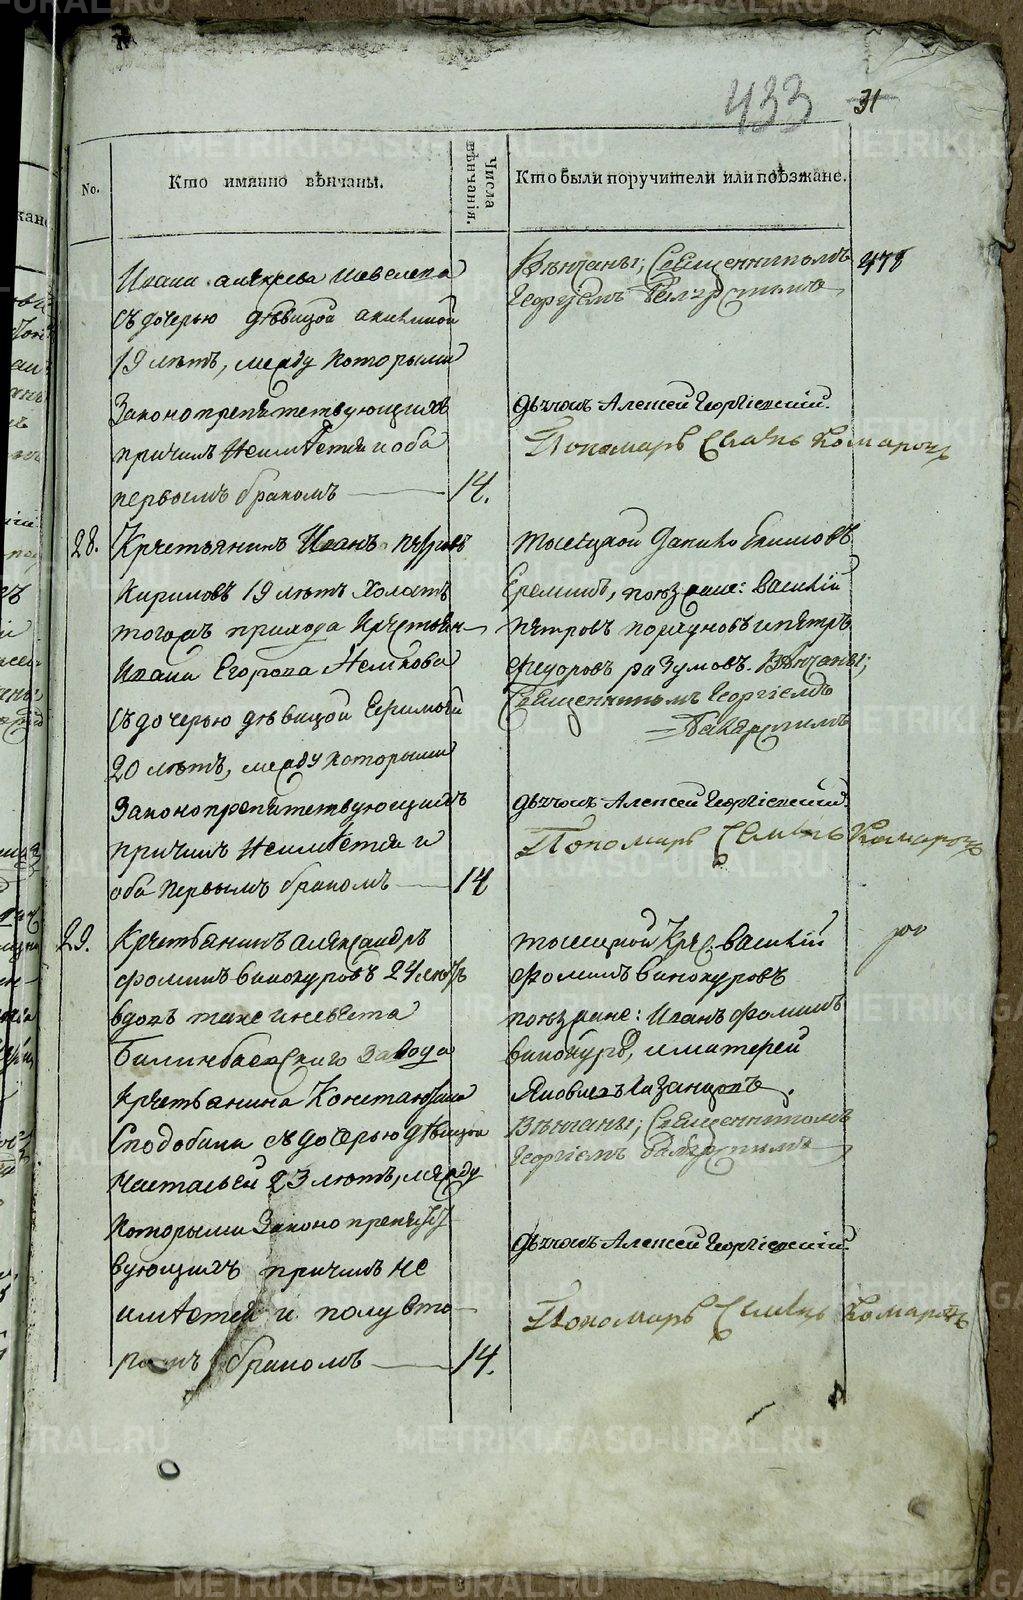 433
31
No.
Кто имянно вѣнчаны.
Числа вѣнчанія.
Кто были поручители или поѣзжане.
Ивана
съ дочерью дѣвицой акилиной
19 лѣтъ, между которыми
законопрепятствующихъ
причинъ неимѣется и оба
первымъ бракомъ 14.
Вѣнчаны; Священникомъ 478
Георгіемъ
дьячокъ Алексей Георгіевскій.
Пономарь Комаровъ
28. Крестьянинъ Иванъ петровъ
Кириловъ 19 лѣтъ холостъ
тогожъ прихода Крестьян-
Ивана Егорова
съ дочерью дѣвицой
20 лѣтъ, между которыми
законопрепятствующихъ
причинъ неимѣется и
оба первымъ бракомъ 14
тысецкой Данило
Ереминъ, поѣзжане: василій
петровъ и петръ
федоровъ разумовъ. Вѣнчаны;
Священникомъ Георгіемъ
дьячокъ Алексей Георгіевскій.
Пономарь Комаровъ
29. Крестьянинъ александръ
фоминъ винокуровъ 24 лѣтъ
вдовъ
Билинбаевскаго завода
Крестьянина Константина
Сподобина съ дочерью дѣвицой
Натальей 23 лѣтъ, между
которыми законопрепятст
вующихъ причинъ не
имѣется и полувто-
рымъ бракомъ 14.
тысецкой Кре. василій
фоминъ винокуровъ
поѣзжане: Иванъ фоминъ
винокуровъ,
Яковлевъ казанцовъ.
Вѣнчаны; Священникомъ
Георгіемъ
дьячокъ Алексей Георгіевскій.
Пономарь Комаровъ
METRIKI.GASO-URAL.RU